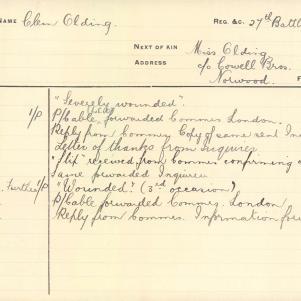 NAME Clem Olding. REG. &C. 27th Battl
NEXT OF KIN Miss Olding
ADDRESS c/o Cowell Bros.
Norwood.
"Severely wounded".
1/P P/Cable forwarded Commrs London.
Reply from Commrs Copy of same sent Inq
Letter of thanks from Inquirer
"flip" received from Commrs confirming
Same forwarded Inquirer
Further 1/P "Wounded". (3rd occasion)
P/Cable forwarded Commrs. London
Reply from Commrs. Information for